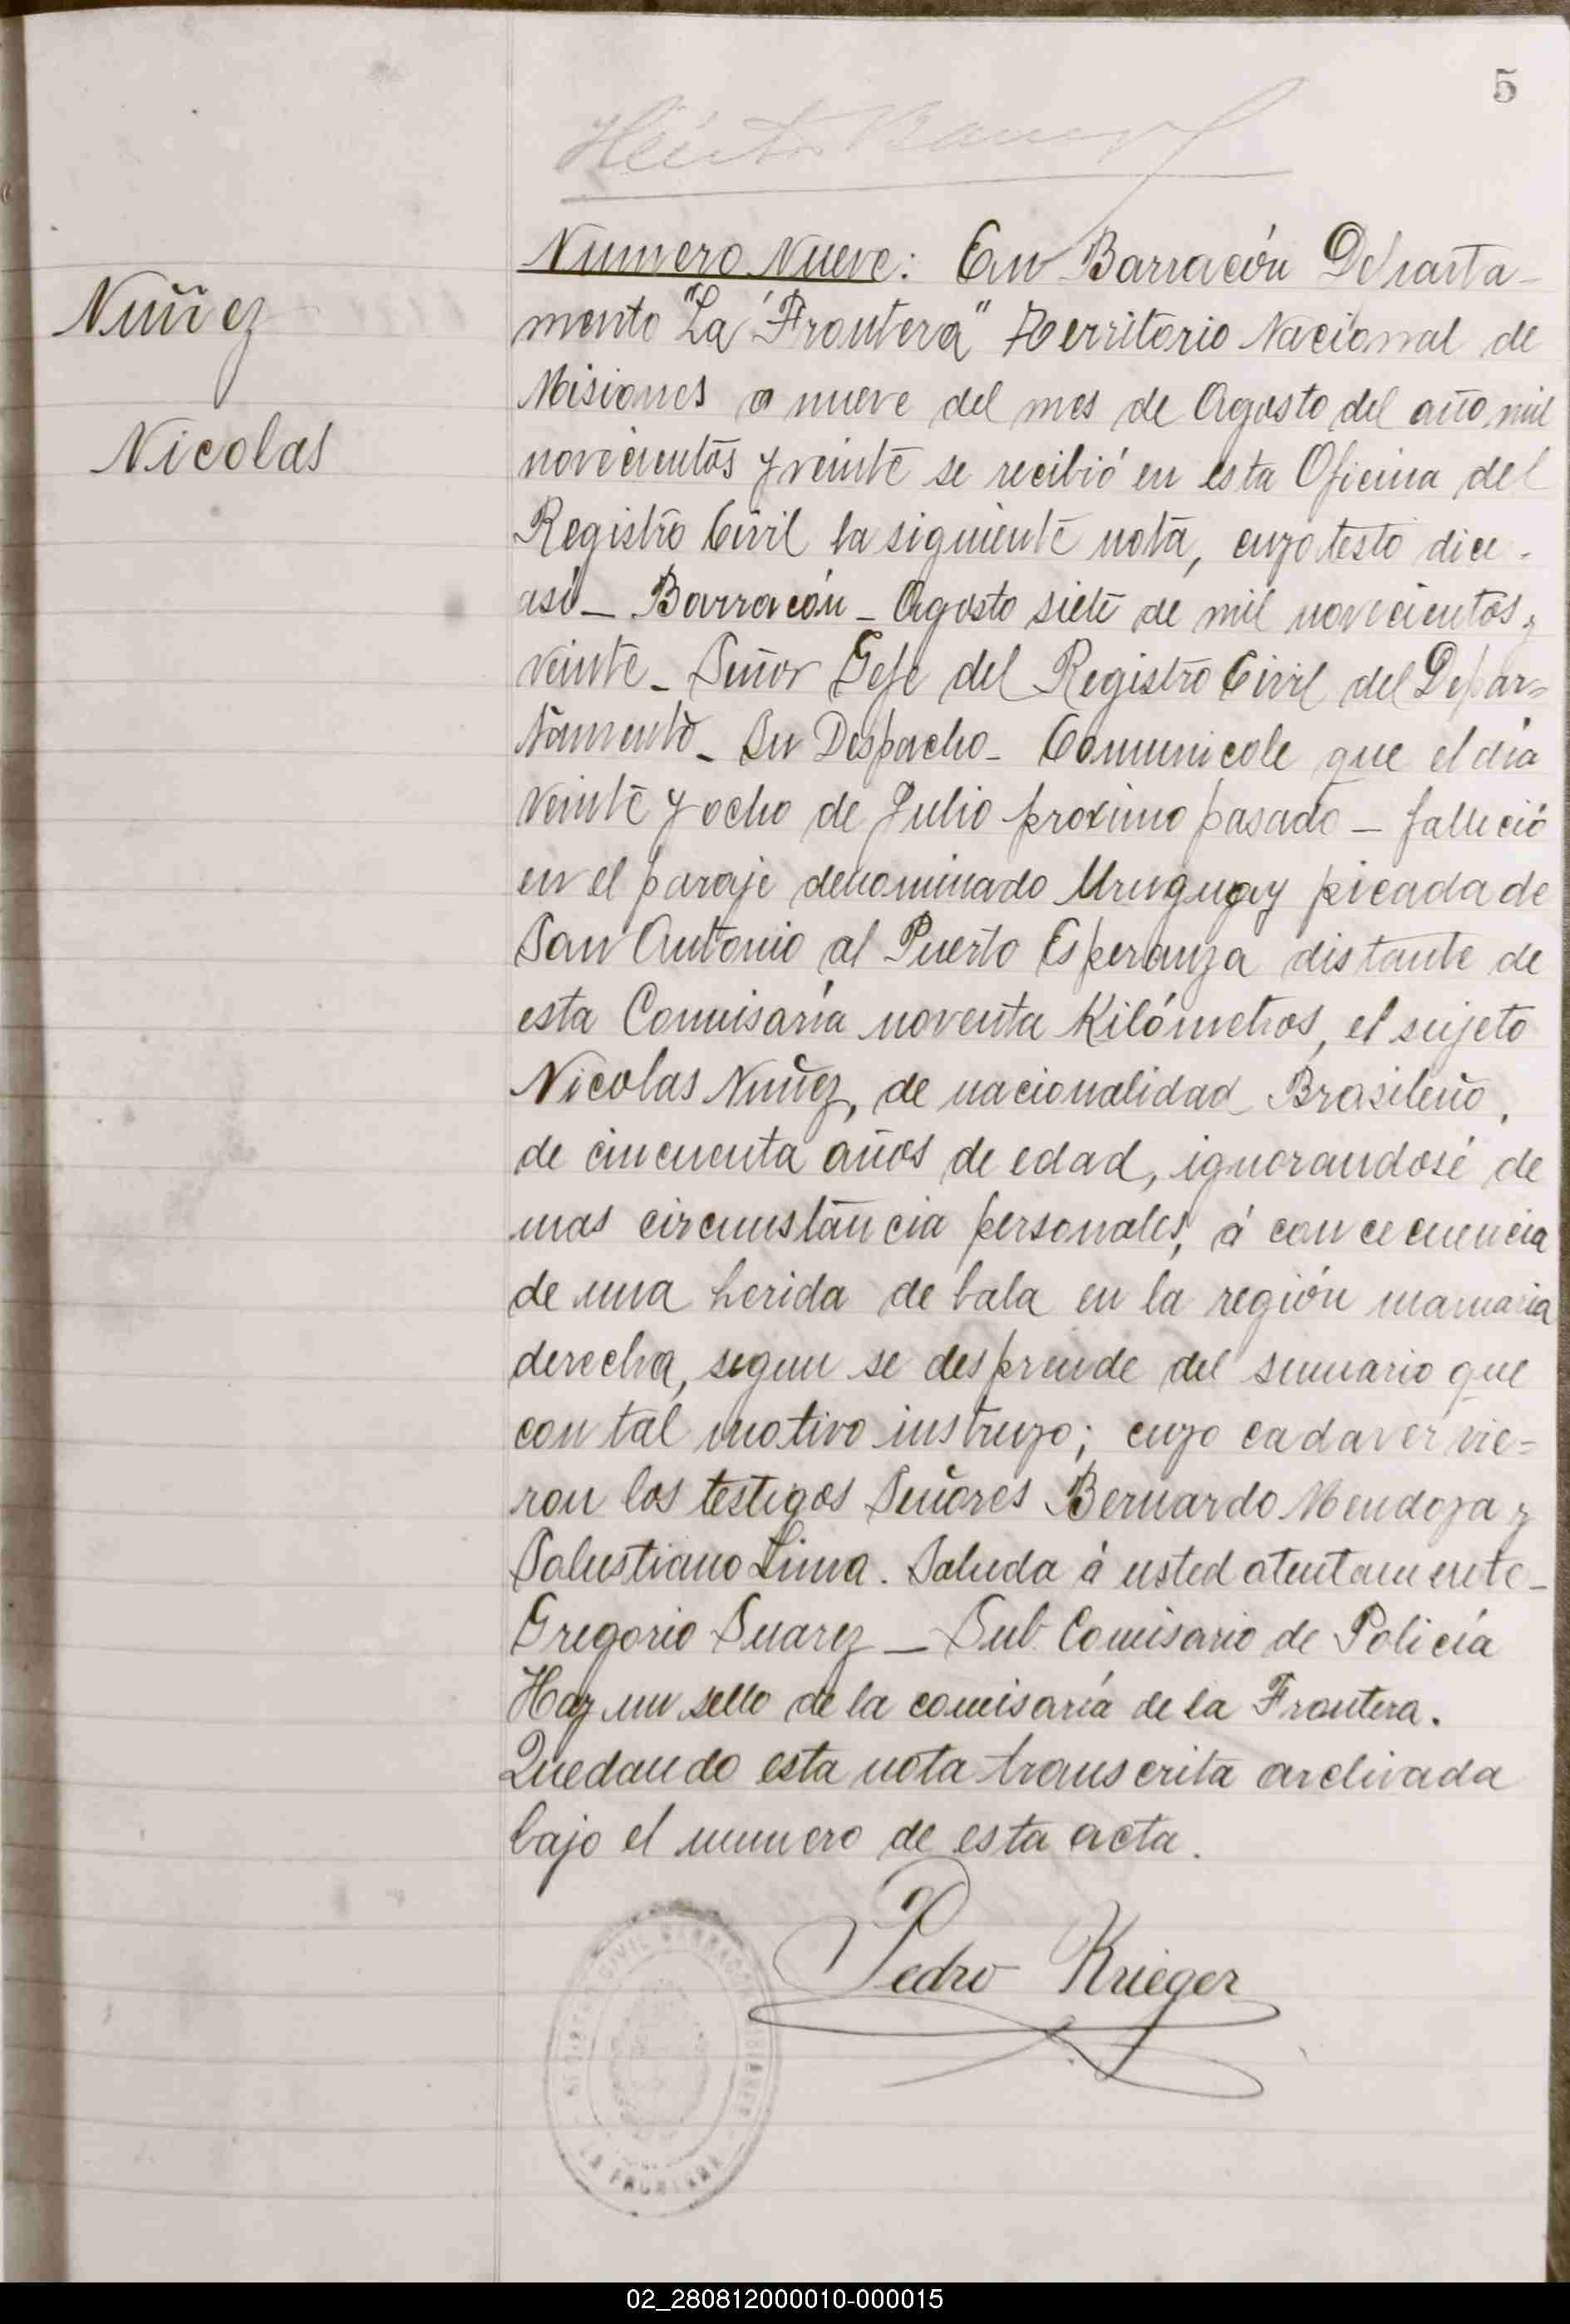 5
Nuñez
Nicolas
Numero Nueve: En Barracón Departa-
mento "La Frontera" Territorio Nacional de
Misiones a nueve del mes de Agosto del año mil
novecientos y veinte se recibió en esta Oficina del
Registro Civil la siguiente nota, cuyo testo dice.
asi_ Barracón_ Agosto siete de mil novecientos y
veinte_ Señor Gefe del Registro Civil del Depar=
tamento_ Su Despacho_ Comunicole que el dia
veinte y ocho de Julio proximo pasado_ falleció
en el paraje denominado Uruguay picada de
San Antonio al Puerto Esperanza distante de
esta Comisaría noventa Kilómetros, el sujeto
Nicolas Nuñez, de nacionalidad Brasileño,
de cincuenta años de edad, ignorandosé de
mas circunstancia personales, á concecuencia
de una herida de bala en la región mamaria
derecha, segun se desprende del sumario que
con tal motivo instruyo; cuyo cadaver vie=
ron los testigos Señores Bernardo Mendoza y
Salustiano Lima. Saluda á usted atentamente_
Gregorio Suarez_ Sub. Comisario de Policía
Hay un sello de la comisaría de la Frontera.
Quedando esta nota transcrita archivada
bajo el numero de esta acta.
Pedro Krieger
REGISTRO CIVIL BARRACON MISIONES
LA FRONTERA
02_280812000010-000015